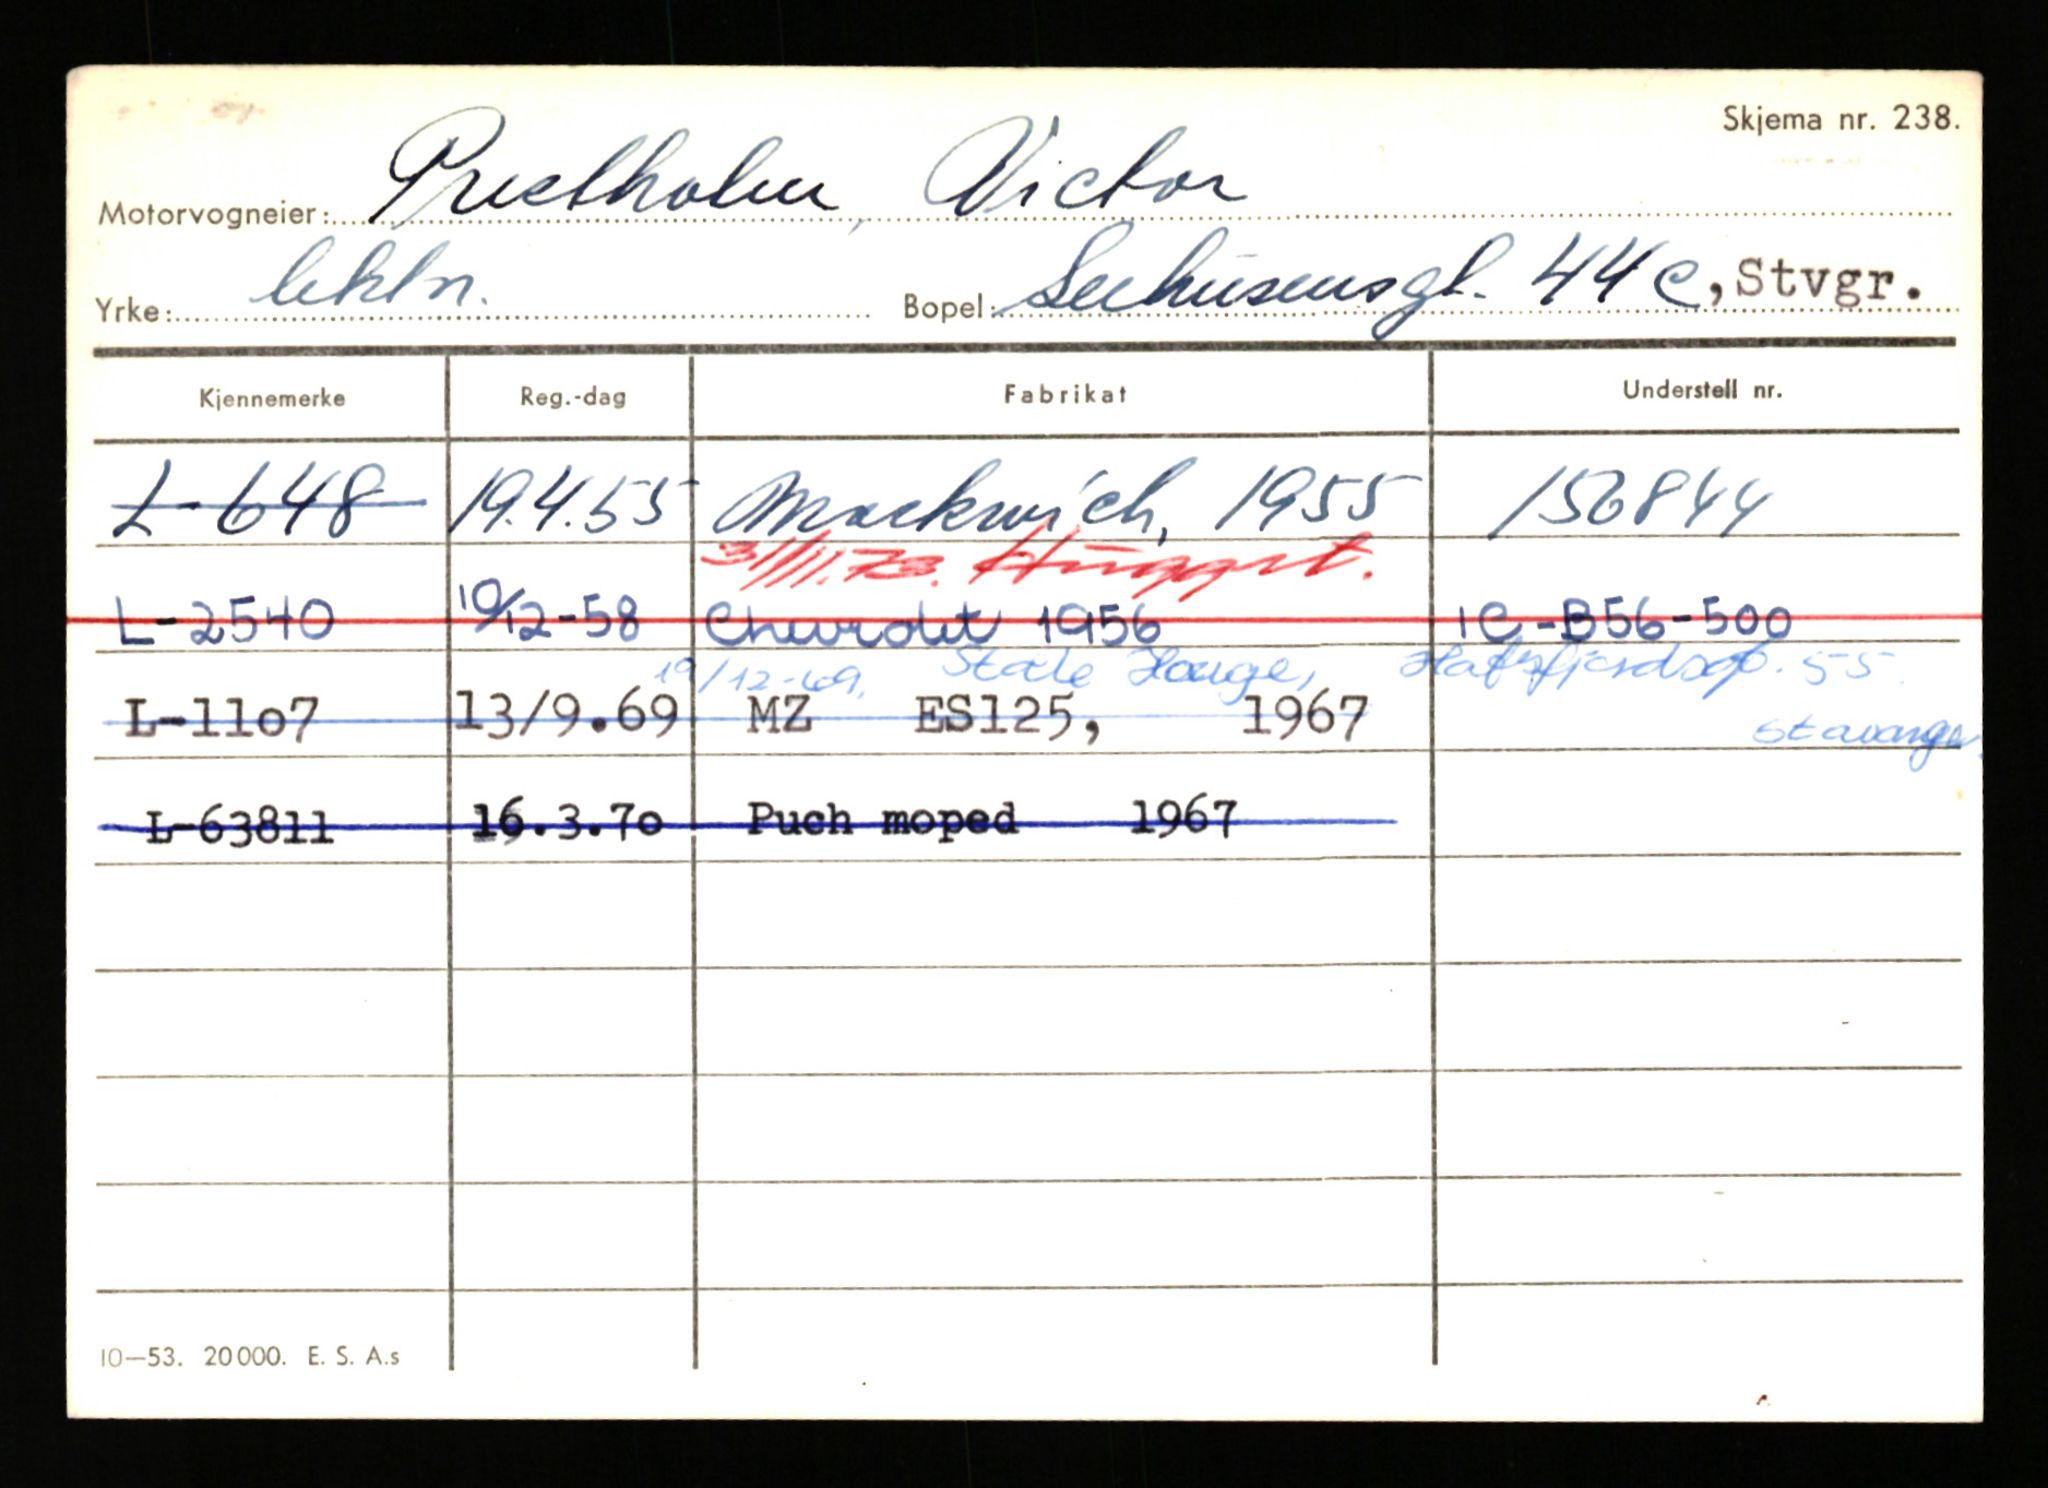 Skjema nr. 238.
Motorvogneier: Prestholm, Victor
Yrke: lektn. Bopel: Seehusensgt. 44 C, Stvgr.
Kjennemerke Reg.-dag Fabrikat Understell nr.
L-648 19.4.55 Mockwich, 1955 156844
31/11.73. Hugget.
L-2540 10/12-58 Chevrolet 1956 1C-B56-500
19/12-69, Ståle Hauge, Hafrsfjordsgt. 55
L-11o7 13/9.69 MZ ES125, 1967 Stavanger.
L-63811 16.3.7o Puch moped 1967
10—53. 20000. E. S. A.s